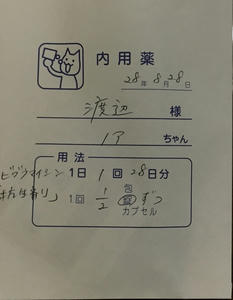 内用薬
28年8月28日
渡辺 様
ノア ちゃん
用法
ビブラマイシン 1日 1回 28日分
「抗生剤」 1回 1/2 包 錠 カプセル ずつ